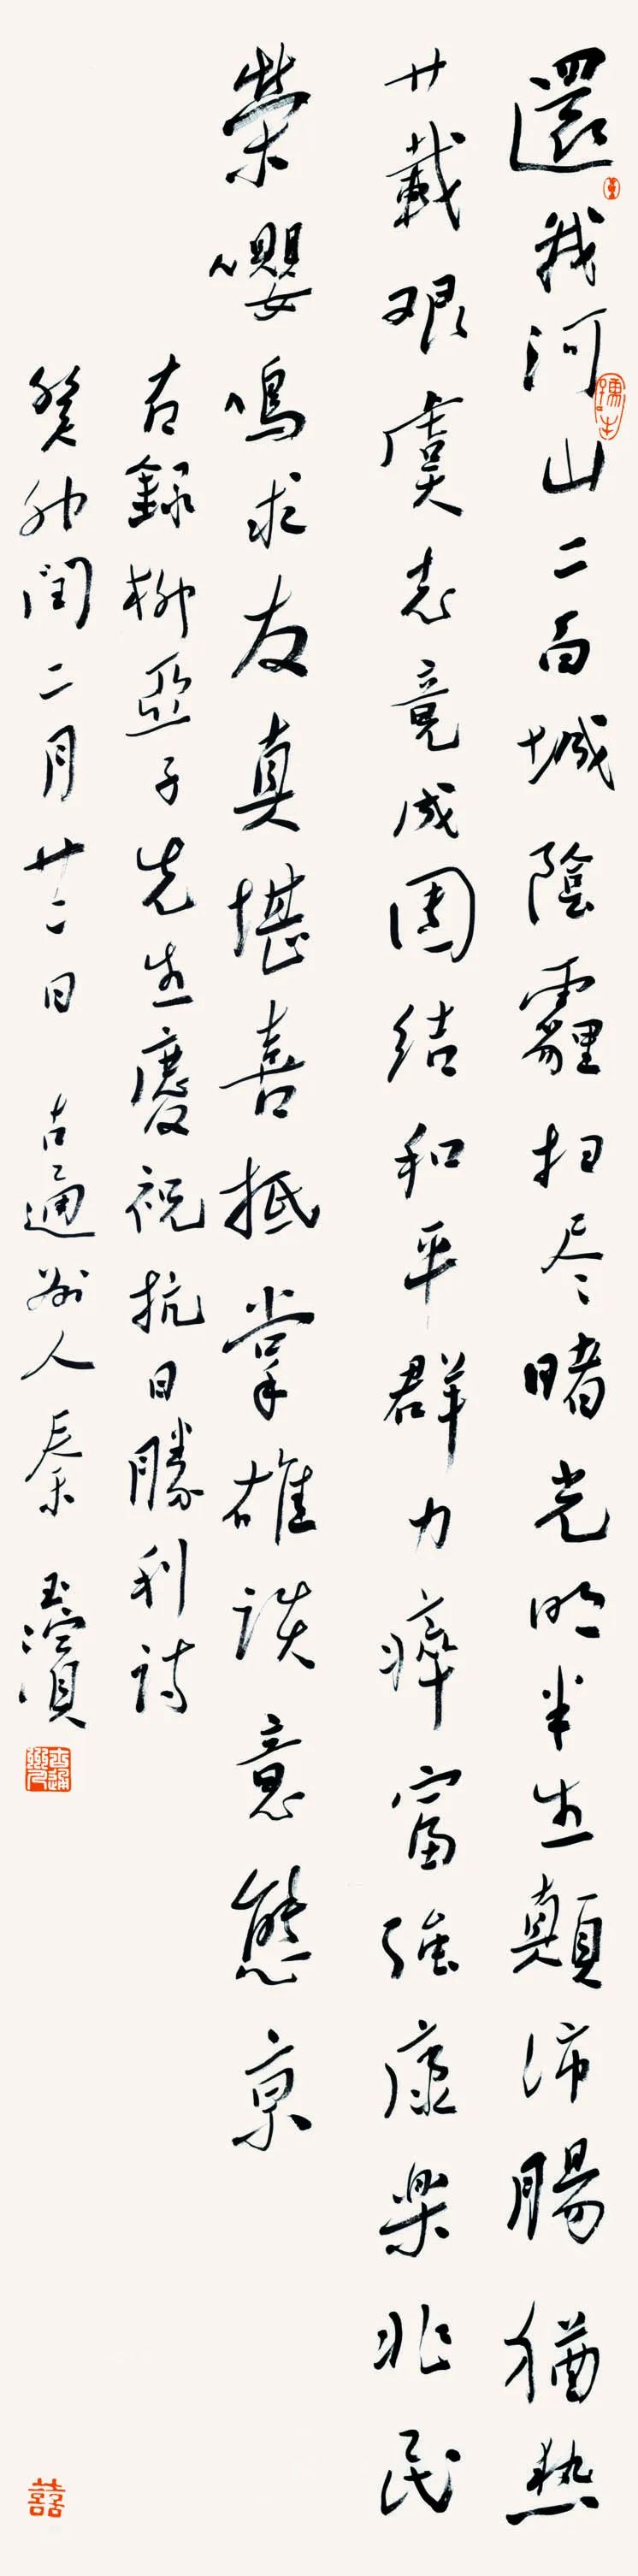 還我河山二百城陰霾扫尽睹光明半生顛沛腸猶熱
廿載艰虞志竟成團結和平群力瘁富強康樂兆民
榮嚶鳴求友真堪喜抵掌雄談意態京
右録柳亞子先生慶祝抗日勝利詩
癸卯閏二月廿二日 古通州人秦玉